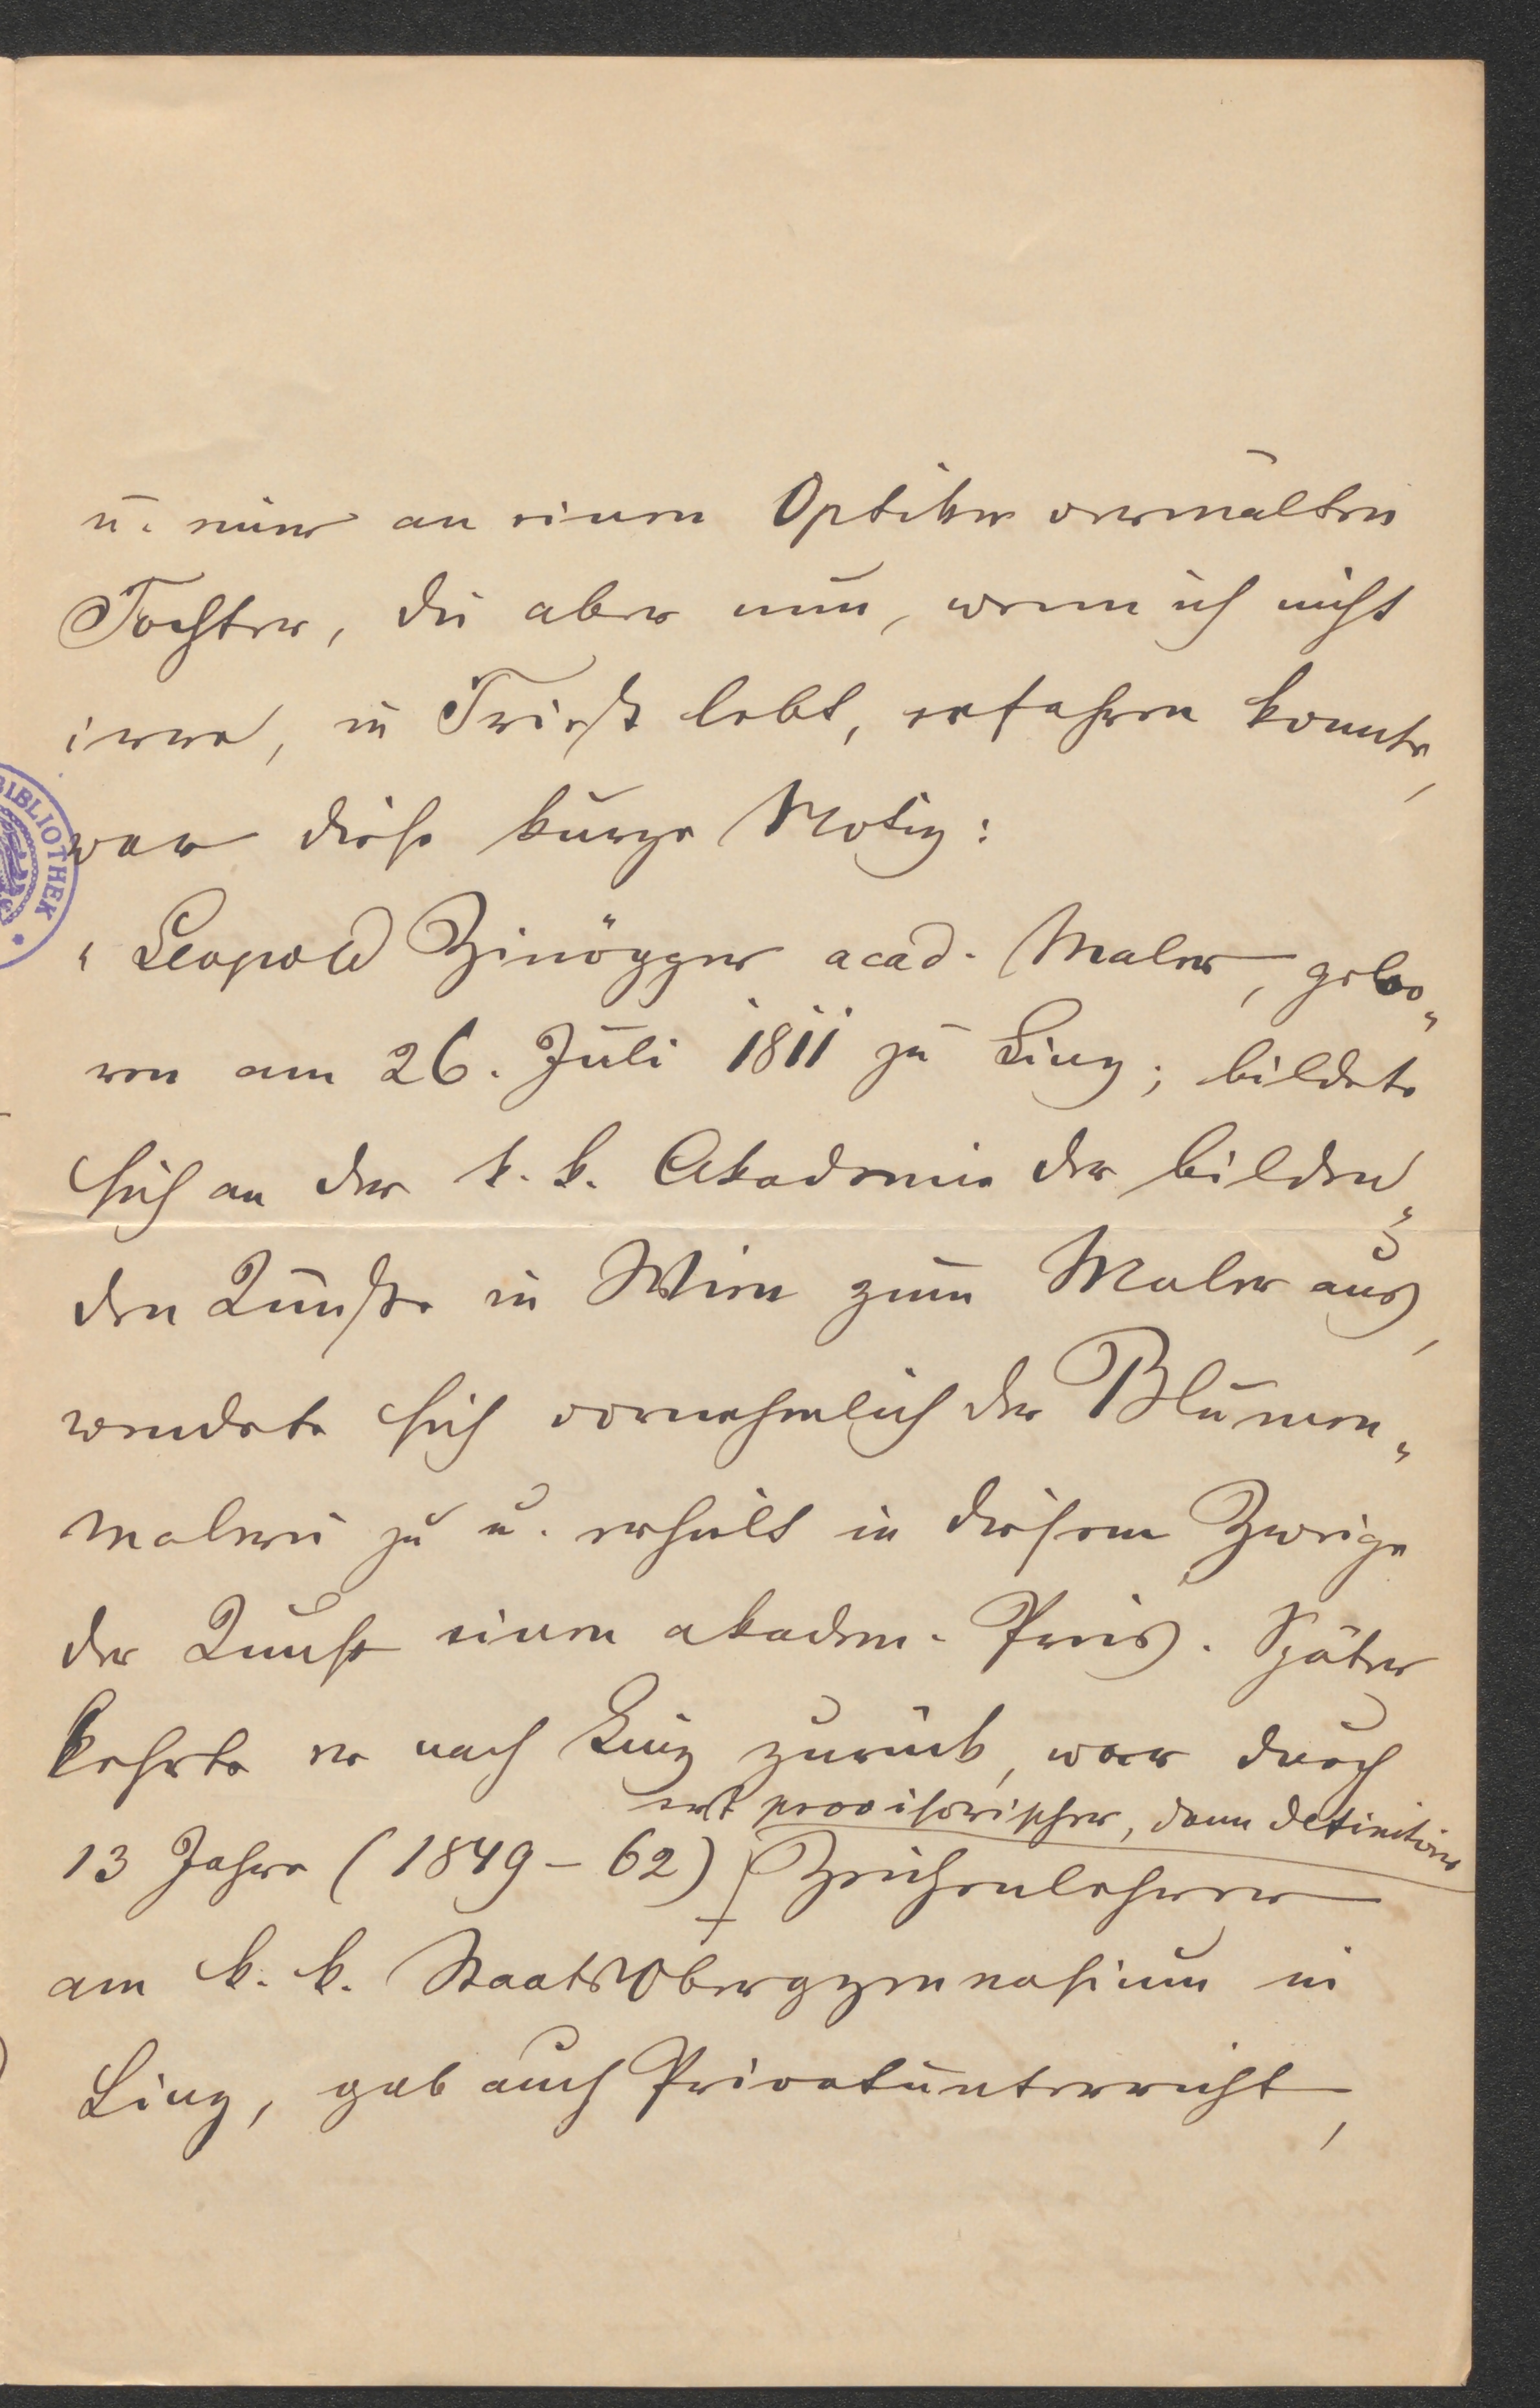 u. einer an einen Optiker vermälten
Tochter, die aber nun, wenn ich nicht
irre, in Triest lebt, erfahren konnte,
war diese kurze Notiz:
BIBLIOTHEK
"Leopold Zinögger acad. Maler, gebo„
ren am 26. Juli 1811 zu Linz; bildete
sich an der k. k. Akademie der bilden„
den Künste in Wien zum Maler aus,
wendete sich vornehmlich der Blumen„
malerei zu u. erhielt in diesem Zweige
der Kunst einen akadem. Preis. Später
kehrte er nach Linz zurück, war durch
erst provisorischer, dann definitiver
13 Jahre (1849–62) Zeichenlehrer
am k. k. Staats Obergymnasium in
Linz, gab auch Privatunterricht,